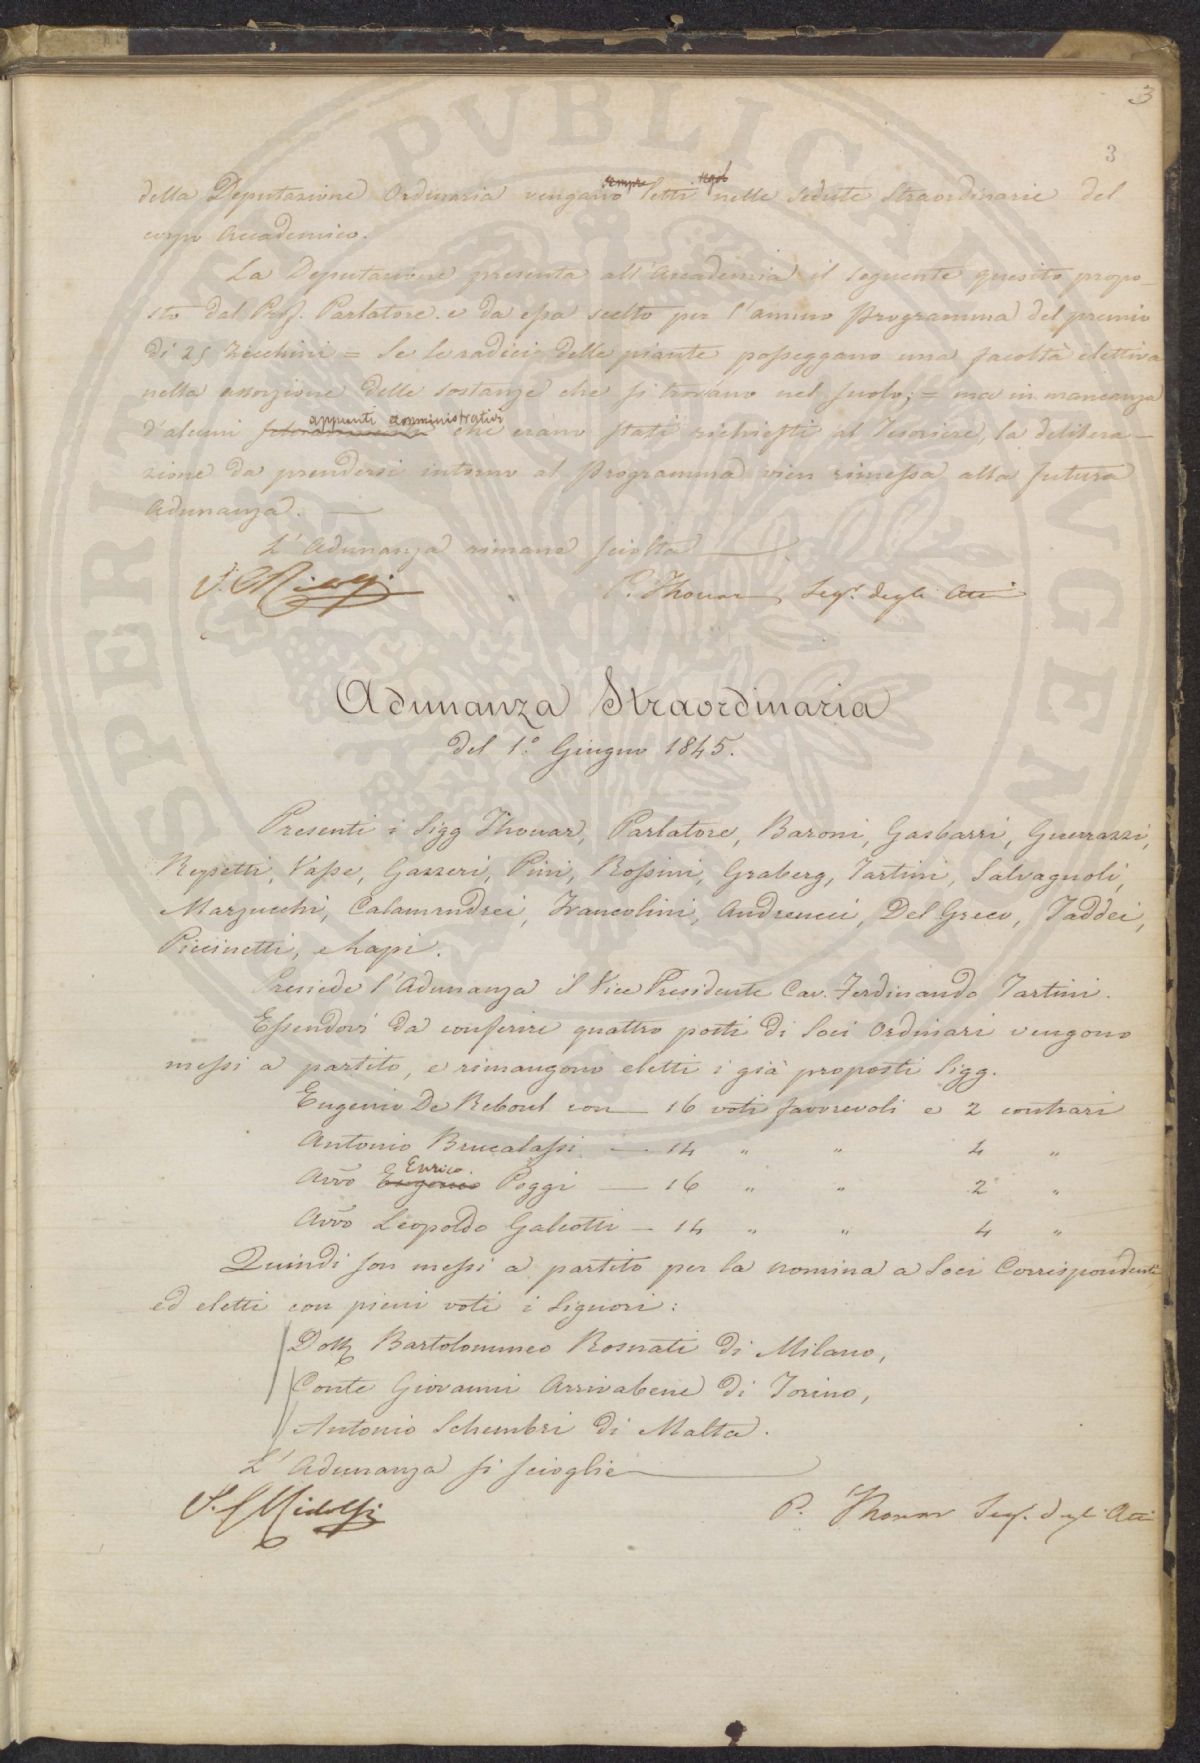 3
3
della Deputazione Ordinaria vengano sempre letti nelle Sedute Straordinarie del
corpo Accademico.
La Deputazione presenta all'Accademia il seguente quesito propo-
sto dal Prof. Parlatore e da essa scelto per l'annuo Programma del premio
di 25 Zecchini = Se le radici delle piante posseggano una facoltà elettiva
nella assorzione delle sostanze che si trovano nel suolo; = ma in mancanza
d'alcuni appunti amministrativi che erano stati richiesti al Tesoriere, la delibera-
zione da prendersi intorno al Programma vien rimessa alla futura
Adunanza.
L'Adunanza rimane sciolta
P. Thouar, Seg. degli Atti
Adunanza Straordinaria
del 1.° Giugno 1845.
Presenti i Sigg Thouar, Parlatore, Baroni, Gasbarri, Guerrazzi,
Repetti, Vasse, Gazzeri, Pini, Rossini, Graberg, Tartini, Salvagnoli,
Marzucchi, Calamandrei, Francolini, Andreucci, Del Greco, Taddei,
Piccinetti, e Lapi.
Presiede l'Adunanza il Vice Presidente Cav. Ferdinando Tartini.
Essendovi da conferire quattro posti di Soci Ordinari vengono
messi a partito, e rimangono eletti i già proposti Sigg.
Eugenio De Reboul con — 16 voti favorevoli e 2 contrari
Antonio Brucalassi — 14 " " 4 "
Avvo Eugenio Enrico Poggi — 16 " " 2 "
Avvo Leopoldo Galeotti — 14 " " 4 "
Quindi son messi a partito per la nomina a Soci Corrispondenti
ed eletti con pieni voti i Signori:
Dott Bartolommeo Rosnati di Milano,
Conte Giovanni Arrivabene di Torino,
Antonio Schembri di Malta.
L'Adunanza si scioglie
P. Thouar Seg. degli Atti